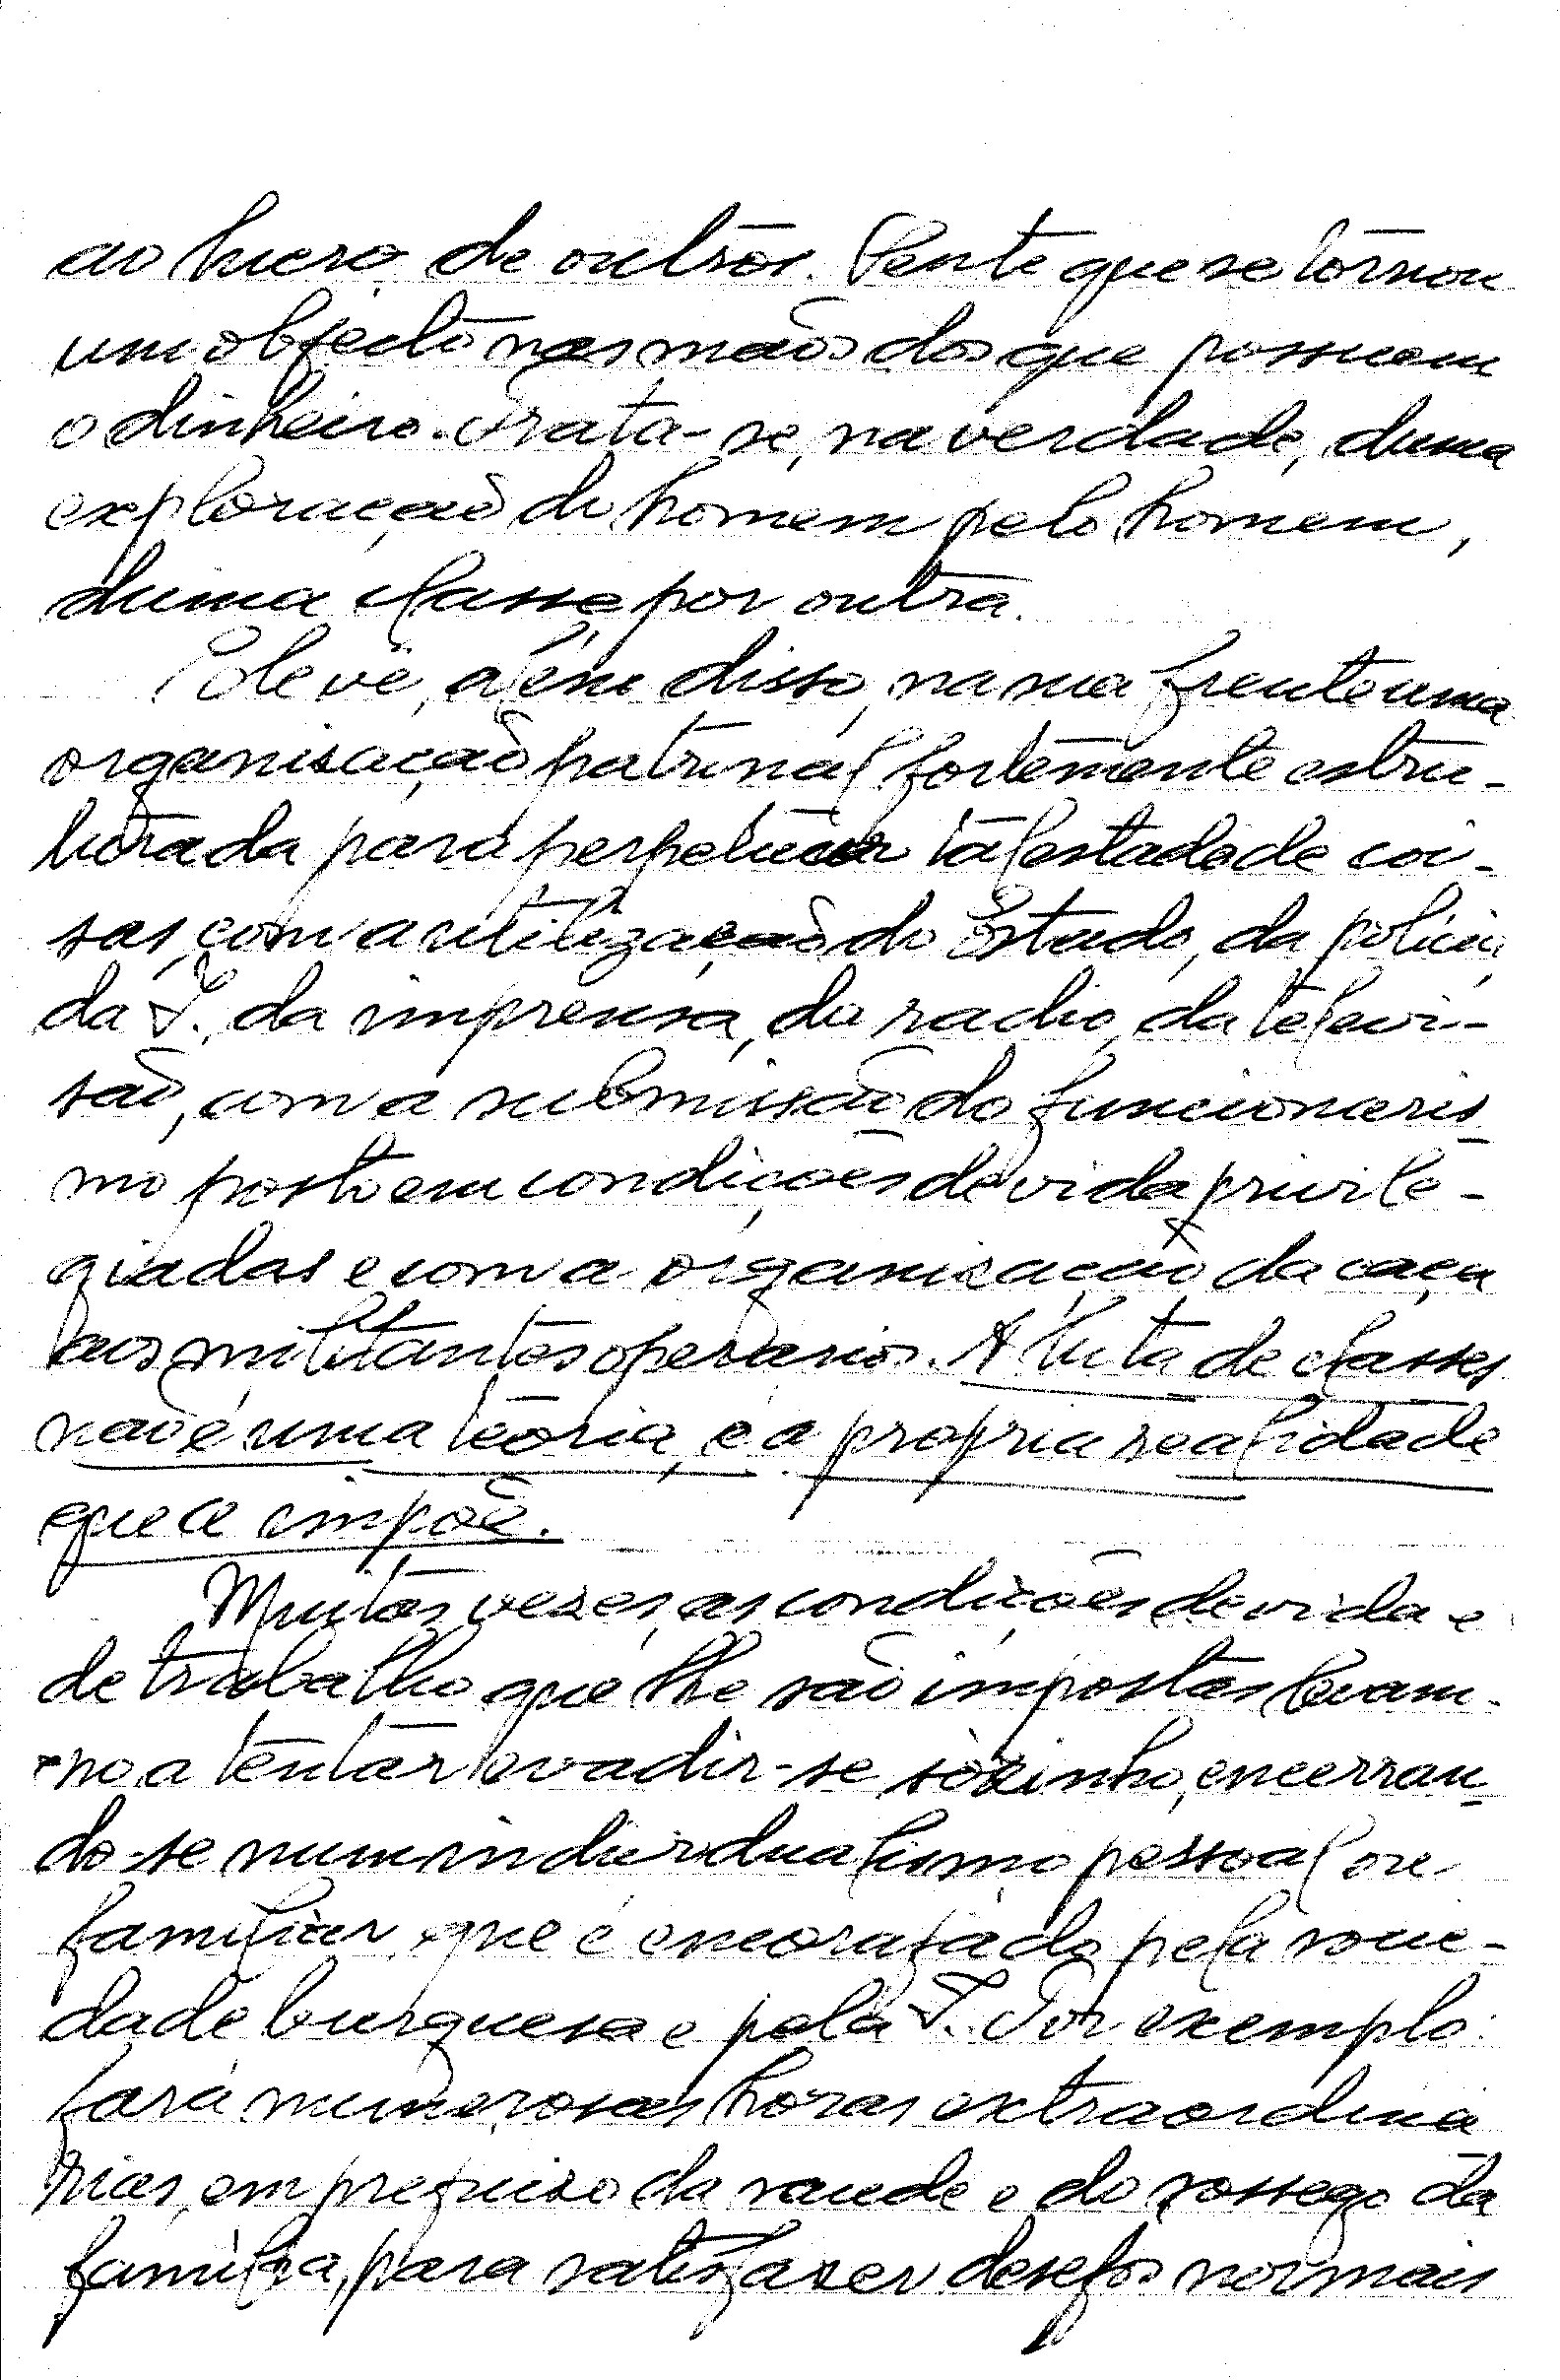 ao lucro de outros. Sente que se tornou
um objecto nas mãos dos que possuem
o dinheiro. Trata-se, na verdade, duma
exploração do homem pelo homem,
duma classe por outra.
Ele vê, além disso, na sua frente uma
organisação patronal fortemente estru-
turada para perpetuar tal estado de coi-
sas, com a utilização do Estado, da polícia,
da I., da imprensa, da radio, da televi-
são, com a submissão do funcionaris
mo posto em condições de vida privile-
giadas e com a organisação da caça
aos militantes operários. A luta de classes
não é uma teoria, é a propria realidade
que a impõe.
Muitas vezes, as condições de vida e
de trabalho que lhe são impostas levam-
-no a tentar evadir-se sòzinho, encerran
do-se num individualismo pessoal ou
familiar, que é encorajado pela socie-
dade burguesa e pela I. Por exemplo:
fará numerosas horas extraordiná
rias, em prejuizo da saude e do sossego da
família, para satisfazer desejos normais